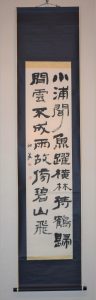 小浦聞魚躍横林待鶴歸
閒雲不成雨故傍碧山飛